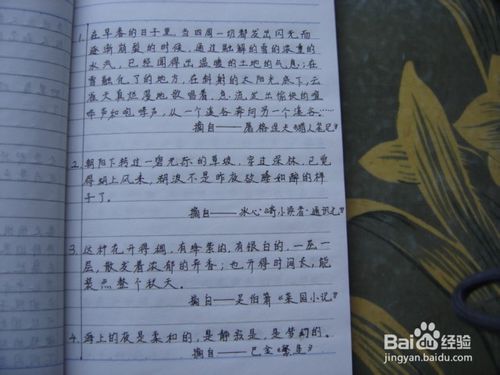 1. 在早春的日子里,当四周一切都发出闪光而
逐渐崩裂的时候,通过融解的雪的浓重的
水气,已经闻得出温暖的土地的气息;在
雪融化了的地方,在斜射的太阳光底下,云
雀天真烂漫地歌唱着,急流发出愉快的喧
哗声和咆哮声,从一个溪谷奔向另一个溪谷……
摘自——屠格涅夫《猎人笔记》
2. 朝阳下转过一碧无际的草坡,穿过深林,已觉
得湖上风来,湖波不是昨夜欲睡如醉的样
子了。
摘自——冰心《寄小读者·通讯七》
3. 这种花开得稠,有绛紫的,有银白的,一层一
层,散发着浓郁的异香;也开得时间长,能
装点整个秋天。
摘自——吴伯箫《菜园小记》
4. 海上的夜是柔和的,是静寂的,是梦幻的。
摘自——巴金《繁星》
Bai 百度 经验
jingyan.baidu.com